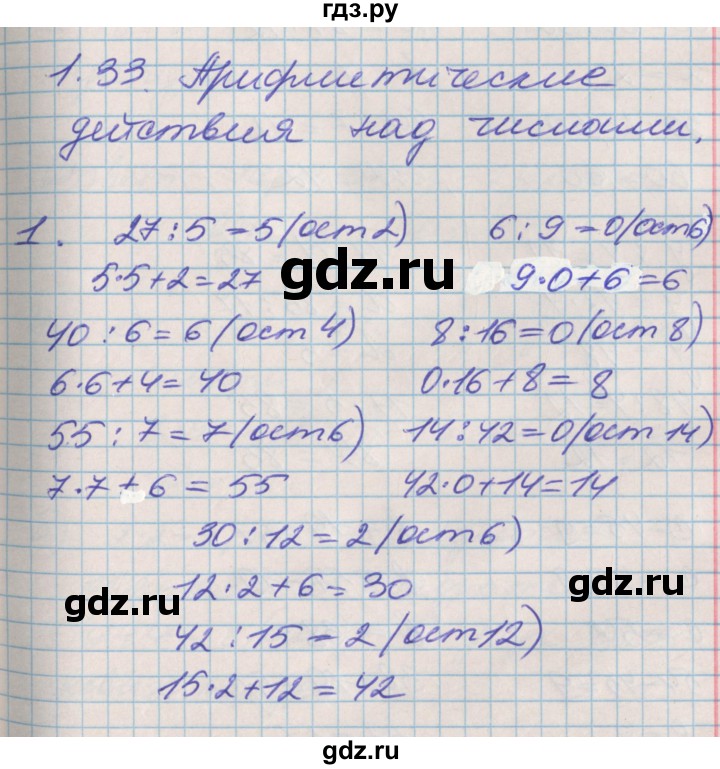 гдз.ру
1.33. Арифметические
действия над числами.
1. 27:5=5(ост2) 6:9=0(ост6)
5·5+2=27 9·0+6=6
gdz.ru
40:6=6(ост 4) 8:16=0(ост 8)
6·6+4=40 0·16+8=8
55:7=7(ост6) 14:42=0(ост 14)
7·7+6=55 42·0+14=14
30:12=2(ост6)
12·2+6=30
gdz.ru
gdz.ru
42:15=2(ост12)
15·2+12=42
gdz.ru